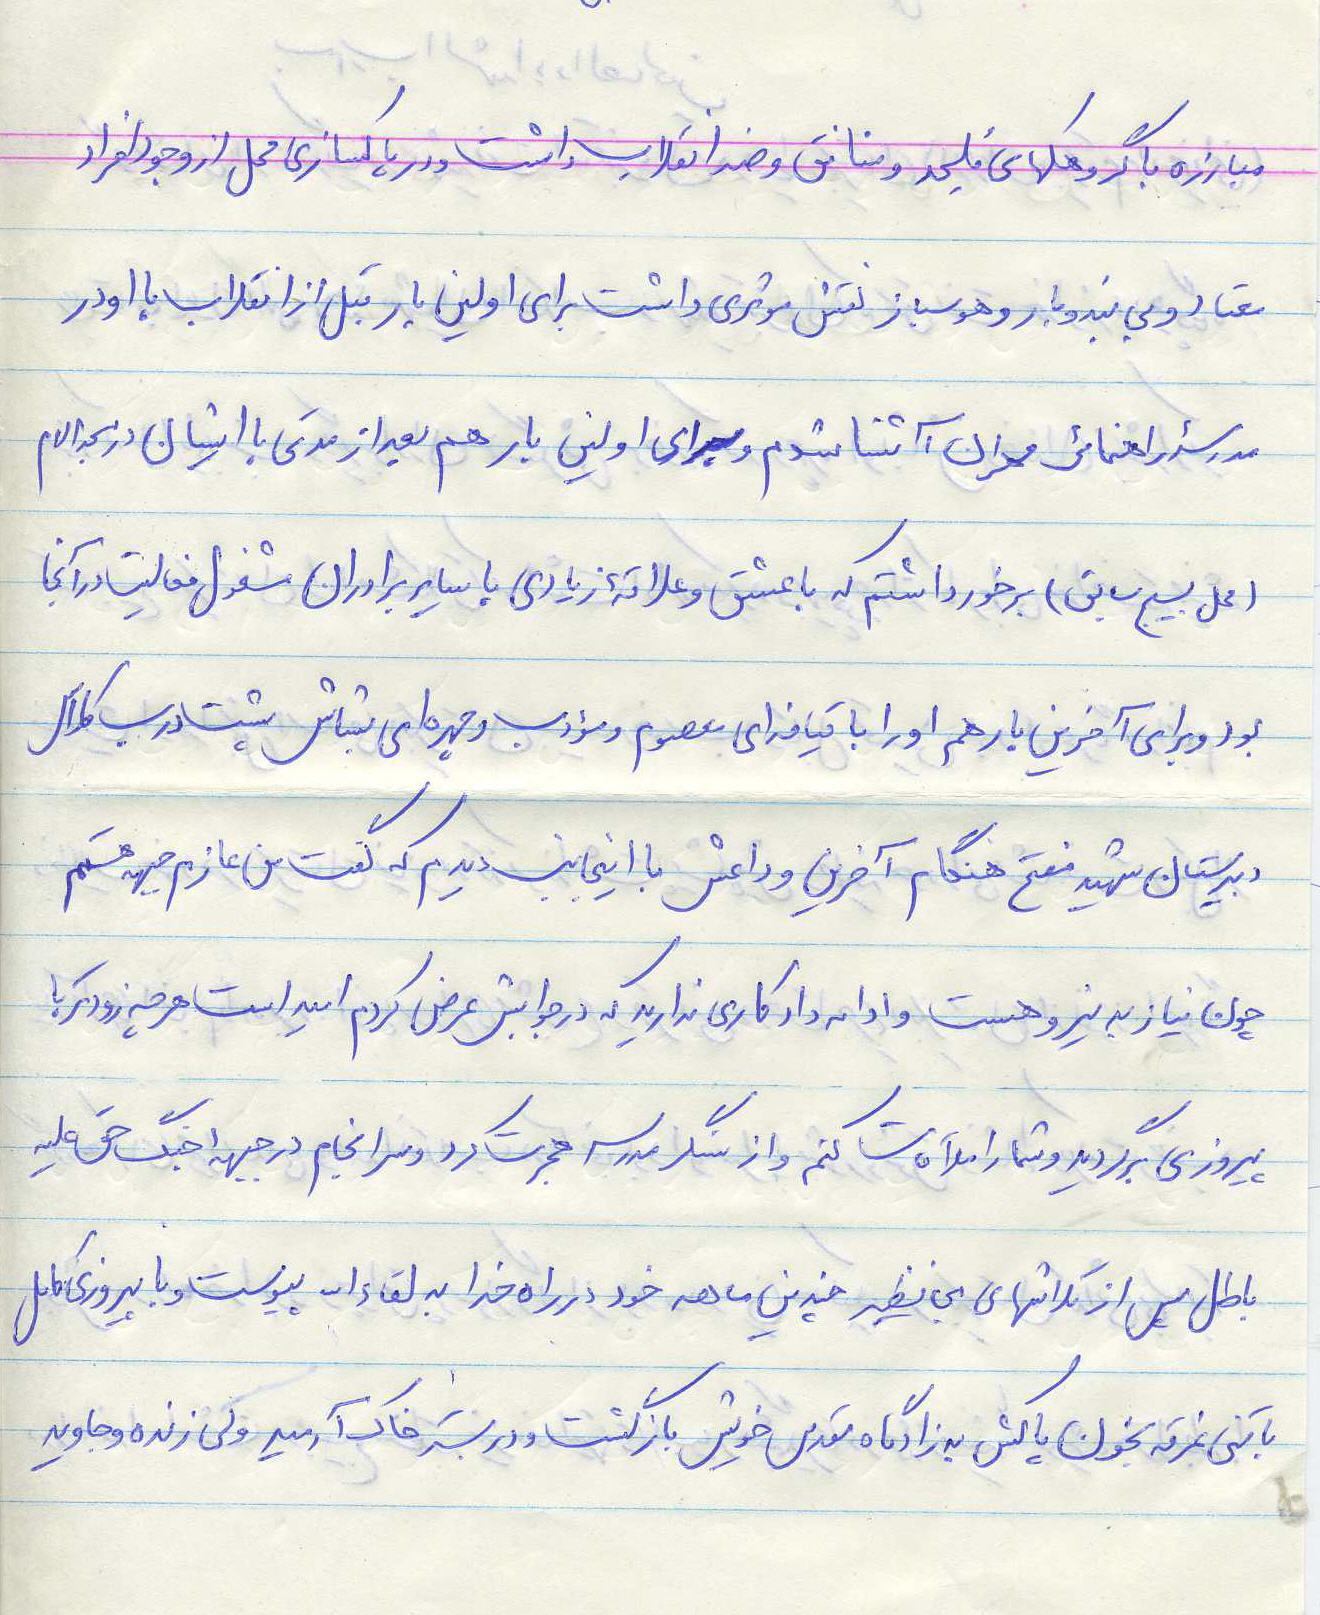 مبارزه با گروهکهای ملحد و منافق و ضد انقلاب داشت و در پاکسازی محل از وجود افراد
معتاد و بی بندوبار و هوسباز نقش موثری داشت برای اولین بار قبل از انقلاب با او در
مدرسه راهنمائی مهران آشنا شدم و برای اولین بار هم بعد از مدتی با ایشان در
(محل بسیج سابق) برخورد داشتم که با عشق و علاقهٔ زیادی با سایر برادران مشغول فعالیت در آنجا
بود و برای آخرین بار هم او را با قیافه‌ای معصوم و مؤدب و چهره‌ای بشاش پشت درب کلاس
دبیرستان شهید مفتح هنگام آخرین وداعش با اینجانب دیدم که گفت من عازم جبهه هستم
چون نیاز به نیرو هست و ادامه داد کاری ندارید که در جوابش عرض کردم امید است هر چه زودتر با
پیروزی برگردید و شما را ملاقات کنم و از سنگر مدرسه هجرت کرد و سرانجام در جبهه جنگ حق علیه
باطل پس از تلاشهای بی نظیر چندین ماهه خود در راه خدا به لقاءاله پیوست و با پیروزی کامل
با تنی غرقه بخون پاکش به زادگاه مقدس خویش بازگشت و در بستر خاک آرمید ولی زنده و جاوید